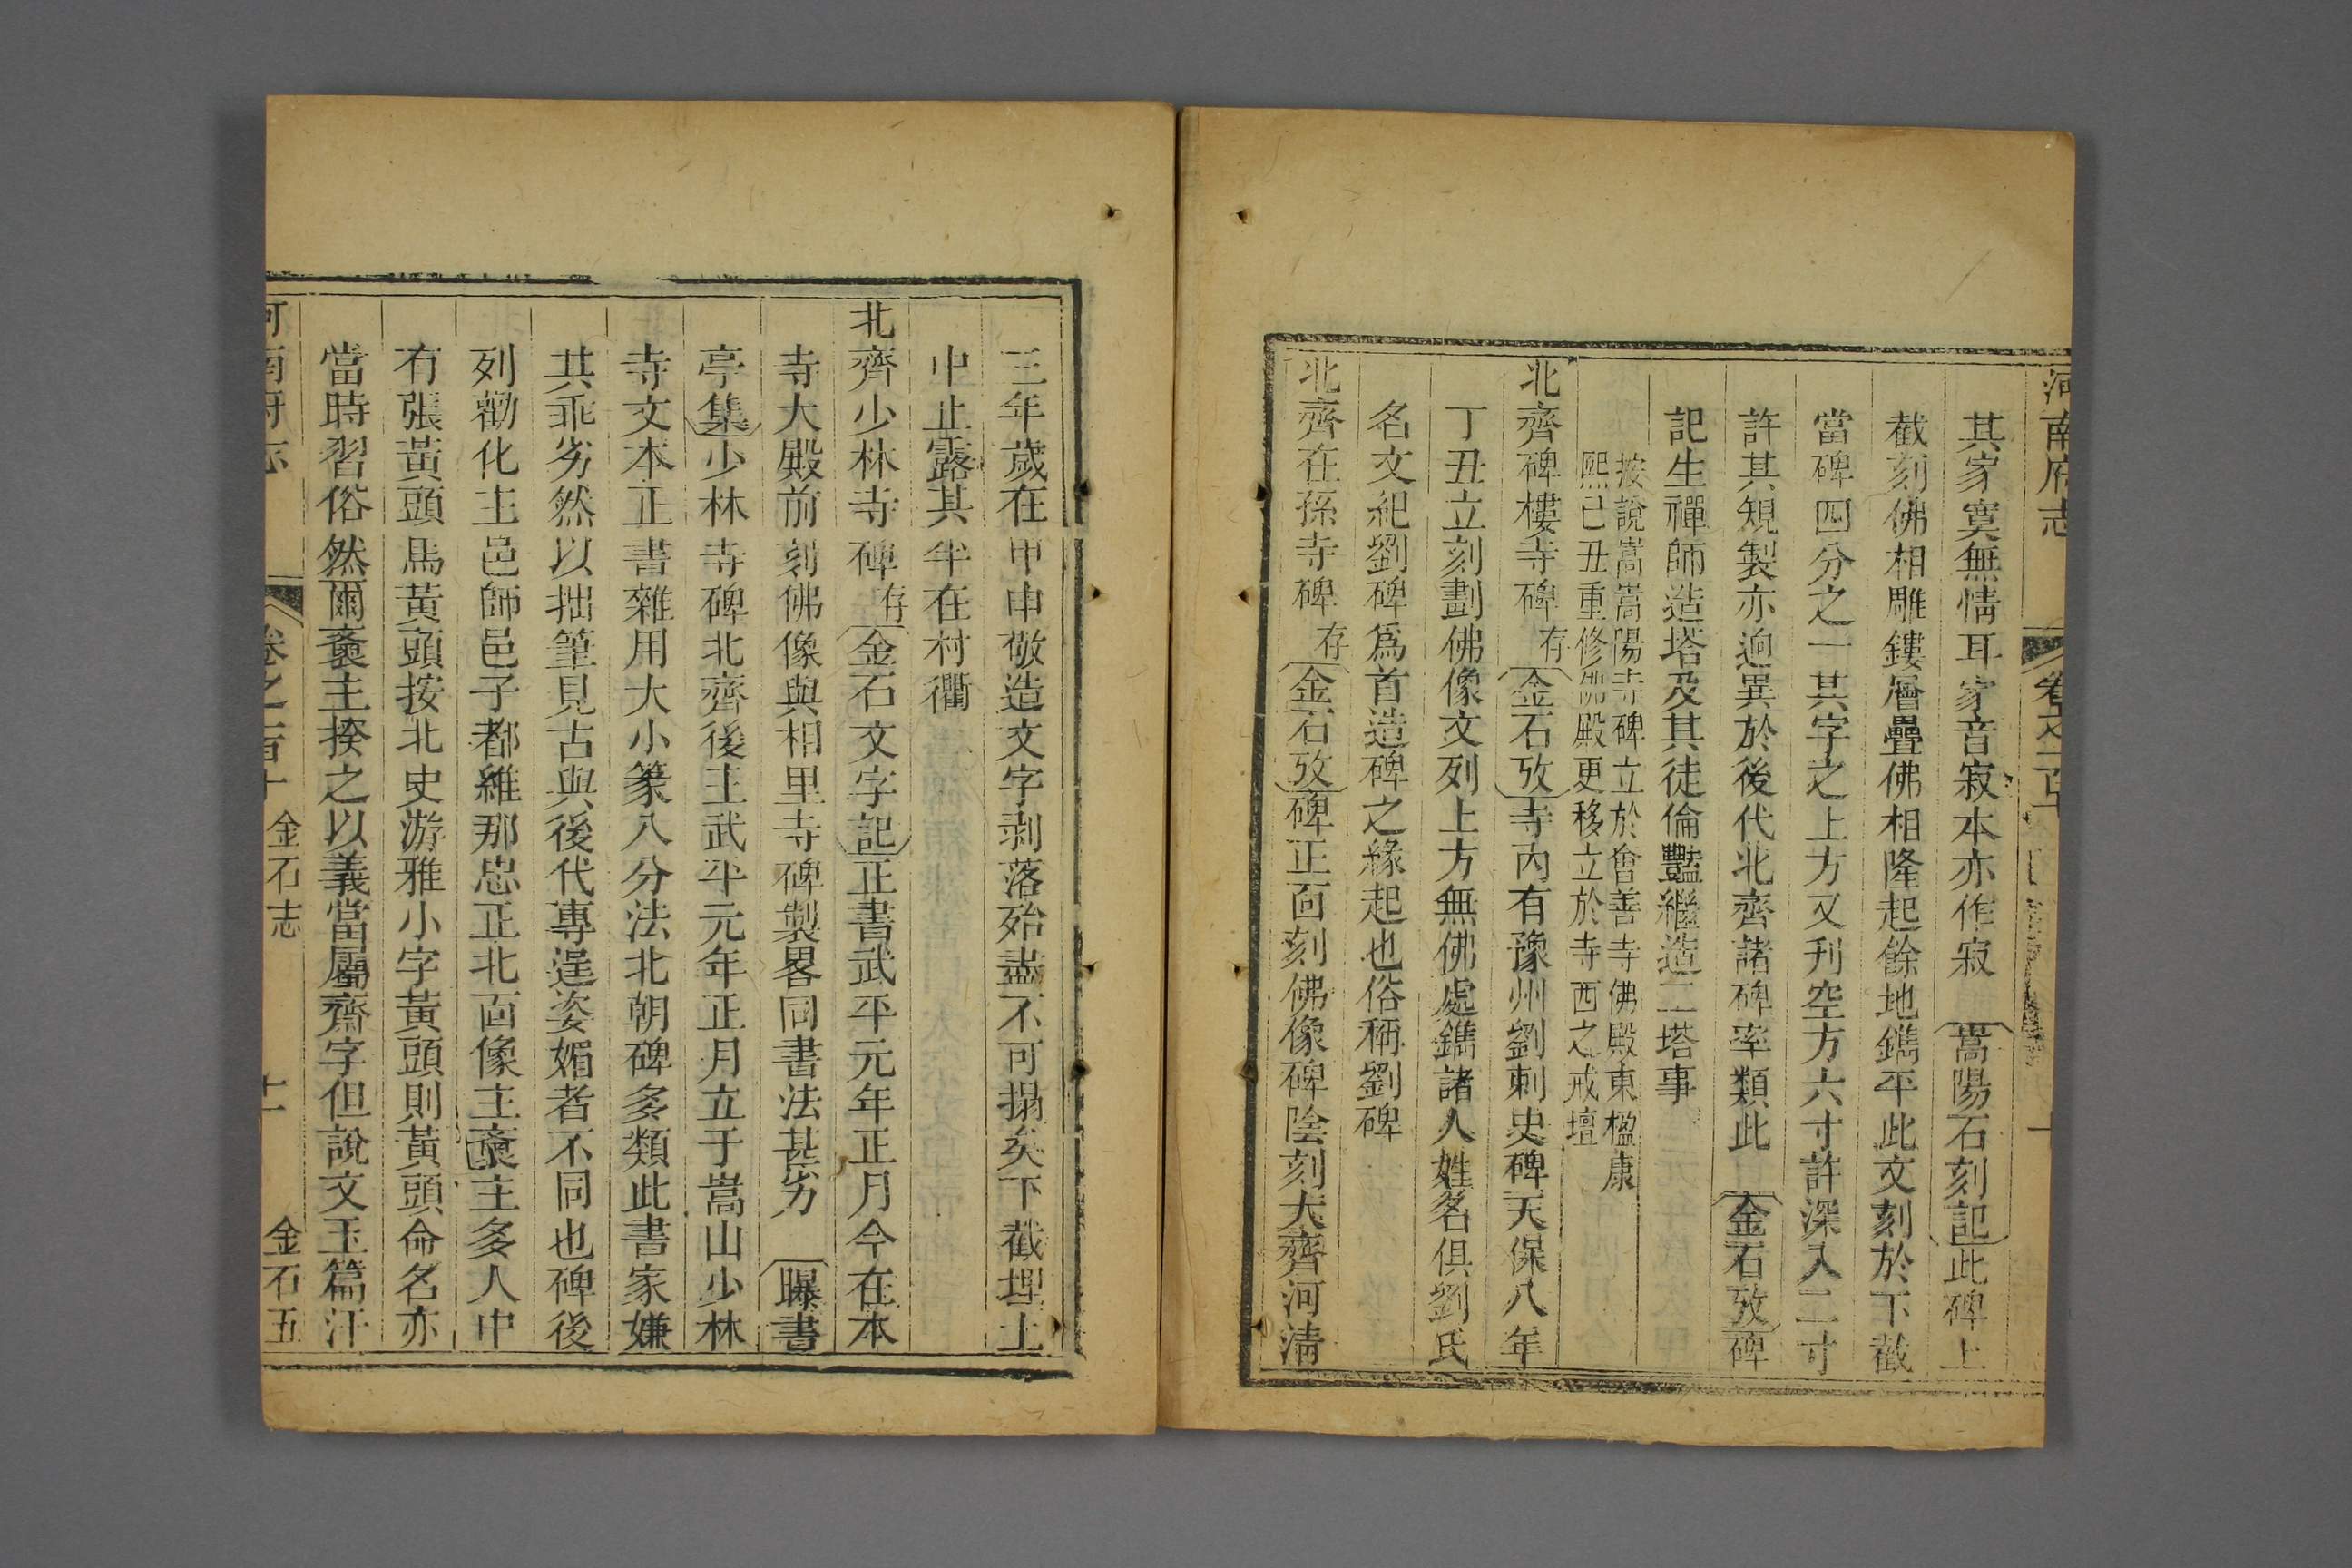 河南府志
其家寞無情耳家音寂本亦作寂 嵩陽石刻記此碑上
截刻佛相雕鏤層疊佛相隆起餘地鐫平此文刻於下截
當碑四分之一其字之上方又刋空方六寸許深入二寸
許其規製亦逈異於後代北齊諸碑率類此 金石攷碑
記生禪師造塔及其徒倫豔繼造二塔事
按說嵩嵩陽寺碑立於會善寺佛殿東楹康
熙己丑重修佛殿更移立於寺西之戒壇
北齊碑樓寺碑存金石攷寺內有豫州劉刺史碑天保八年
丁丑立刻劃佛像文列上方無佛處鐫諸人姓名俱劉氏
名文紀劉碑爲首造碑之緣起也俗稱劉碑
北齊在孫寺碑存金石攷碑正面刻佛像碑陰刻大齊河淸
三年歲在甲申敬造文字剥落殆盡不可搨矣下截埋土
中止露其半在村衢
北齊少林寺碑存金石文字記正書武平元年正月今在本
寺大殿前刻佛像與相里寺碑製畧同書法甚劣 曝書
亭集少林寺碑北齊後主武平元年正月立于嵩山少林
寺文本正書雜用大小篆八分法北朝碑多類此書家嫌
其乖劣然以拙筆見古與後代專逞姿媚者不同也碑後
列勸化主邑師邑子都維那忠正北面像主齋主多人中
有張黃頭馬黃頭按北史游雅小字黃頭則黃頭命名亦
當時習俗然爾齋主揆之以義當屬齋字但說文玉篇汗
河南府志 卷之百十 金石志 十一 金石五